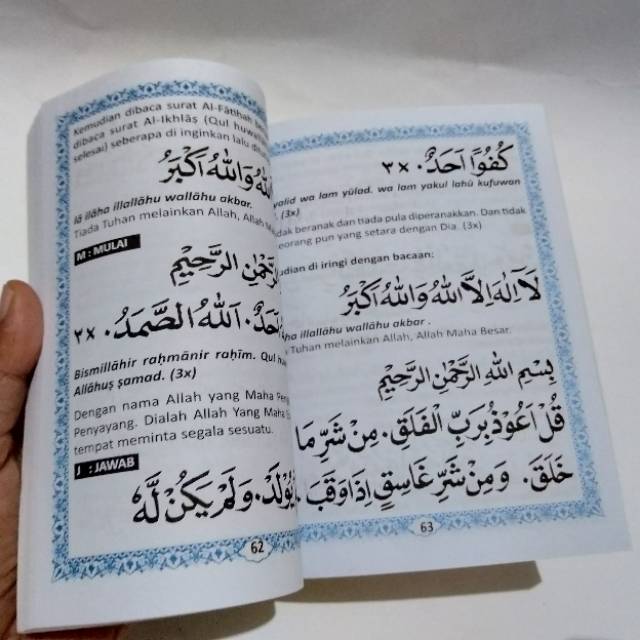 Kemudian dibaca surat Al-Fātihah
dibaca surat Al-Ikhlās (Qul huwa
selesai) seberapa di inginkan lalu
وَاللّٰهُ اَكْبَرُ
lā ilāha illallāhu wallāhu akbar.
Tiada Tuhan melainkan Allah, Allah
M : MULAI
الرَّحْمٰنِ الرَّحِيْمِ
اَحَدٌ. اَللّٰهُ الصَّمَدُ. ٣x
Bismillāhir raḥmānir raḥīm. Qul
Allāhuṣ ṣamad. (3x)
Dengan nama Allah yang Maha
Penyayang. Dialah Allah Yang Maha
tempat meminta segala sesuatu.
J : JAWAB
يُوْلَدْ. وَلَمْ يَكُنْ لَّهٗ
62
كُفُوًا اَحَدٌ. ٣x
yalid wa lam yūlad. wa lam yakul lahū kufuwan
(3x)
beranak dan tiada pula diperanakkan. Dan tidak
seorang pun yang setara dengan Dia. (3x)
di iringi dengan bacaan:
لَآ اِلٰهَ اِلَّا اللّٰهُ وَاللّٰهُ اَكْبَرُ
illallāhu wallāhu akbar .
Tuhan melainkan Allah, Allah Maha Besar.
بِسْمِ اللّٰهِ الرَّحْمٰنِ الرَّحِيْمِ
قُلْ اَعُوْذُ بِرَبِّ الْفَلَقِ. مِنْ شَرِّ مَا
خَلَقَ. وَمِنْ شَرِّ غَاسِقٍ اِذَا وَقَبَ.
63